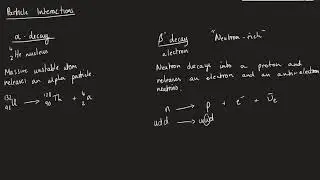 Particle Interactions
α - decay
4
2 He nucleus
Massive unstable atom
releases an alpha particle.
U → Th + 4 2 α
β⁻ decay
electron
"Neutron-rich"
Neutron decays into a proton and
releases an electron and an anti-electron
neutrino.
n → p + e⁻ + ν̄e
udd → uud